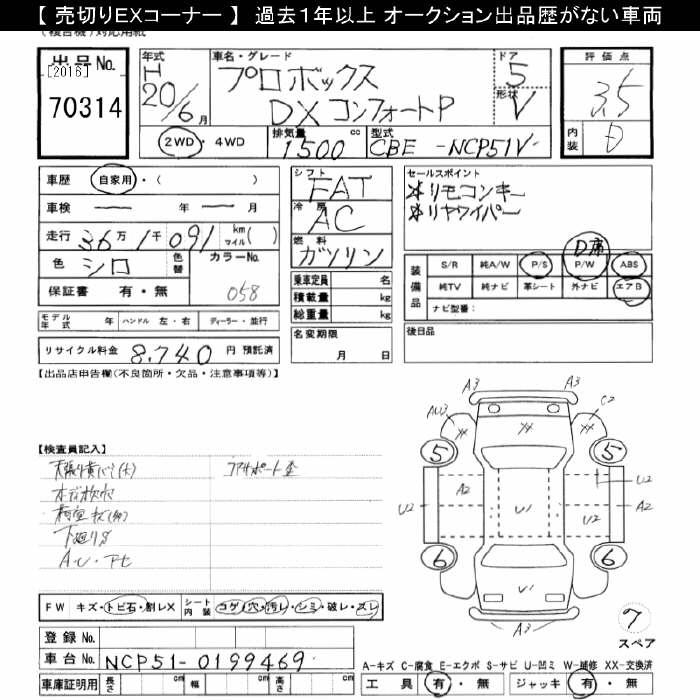 【 売切りEXコーナー 】 過去１年以上 オークション出品歴がない車両
出品No.
[2016]
70314
年式
H
20/6月
車名・グレード
プロボックス
DXコンフォートP
ドア
5
形状
V
評価点
3.5
内装
D
2WD・4WD
排気量
1500 cc
型式
CBE -NCP51V-
車歴 自家用・( )
車検 ― 年 ― 月
走行 36万1千091 km マイル( )
色 シロ 色替
カラーNo.
058
保証書 有・無
モデル年式 年 ハンドル 左・右 ディーラー・並行
リサイクル料金 8,740 円 預託済
シフト
FAT
冷房
AC
燃料
ガソリン
乗車定員 名
積載量 kg
総重量 kg
名変期限
月 日
セールスポイント
*リモコンキー
*リヤワイパー
D席
装備品
S/R 純A/W P/S P/W ABS
純TV 純ナビ 革シート 外ナビ エアB
ナビ型番:
後日品
【出品店申告欄(不良箇所・欠品・注意事項等)】
【検査員記入】
コアサポート歪
下廻りS
FW キズ・トビ石・割レX シート内装 コゲ・穴・汚レ・シミ・破レ・スレ
登録No.
車台No. NCP51-0199469
車庫証明用 長さ cm 幅 cm 高さ cm
A3 A3
AU3 XX XX XX C2
5 5
U2 A2 U1 U2 U2 A2
6 6
U1
A3
7
スペア
A-キズ C-腐食 E-エクボ S-サビ U-凹ミ W-補修 XX-交換済
工具 有・無 ジャッキ 有・無